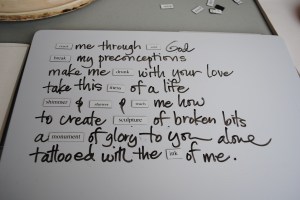 me through God
break my preconceptions
make me drunk with your love
take this mess of a life
& & me how
to create sculpture of broken bits
a monument of glory to you alone
tattooed with the ink of me.